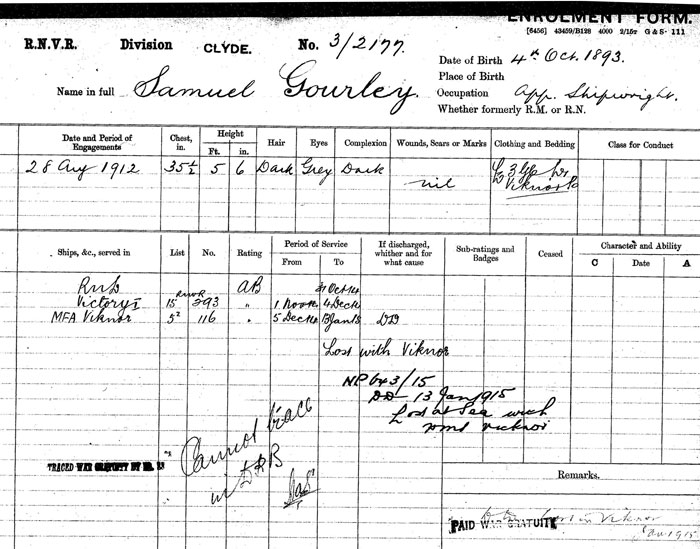 ENROLMENT FORM.
[6456] 43459/B128 4000 2/15T G & S- 111
R.N.V.R. Division CLYDE. No. 3/2177.
Date of Birth 4th Oct. 1893.
Place of Birth
Name in full Samuel Gourley.
Occupation App. Shipwright.
Whether formerly R.M. or R.N.
Date and Period of Engagements Chest, in. Height Ft. in. Hair Eyes Complexion Wounds, Scars or Marks Clothing and Bedding Class for Conduct
28 Aug 1912 35½ 5 6 Dark Grey Dark nil
Viknor
Ships, &c., served in List No. Rating Period of Service From To If discharged, whither and for what cause Sub-ratings and Badges Ceased Character and Ability C Date A
AB 31 Oct 14
Victory I 15 293 " 1 Nov 14 4 Dec 14
MFA Viknor 5² 116 " 5 Dec 14 13 Jan 15 DD
Lost with Viknor
NP 643/15
DD 13 Jan 1915
Lost at Sea with
HMS Vicknor
Cannot trace
in
TRACED WAR GRATUITY
Remarks.
PAID WAR GRATUITY
Viknor
Jan 1915